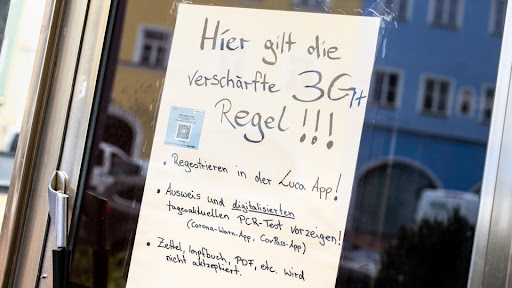 Hier gilt die
verschärfte 3G+
Regel!!!
• Regestrieren in der Luca App!
• Ausweis und digitalisierten
tagesaktuellen PCR-Test vorzeigen!
(Corona-Warn-App, CovPass-App)
• Zettel, Impfbuch, PDF, etc. wird
nicht aktzeptiert.